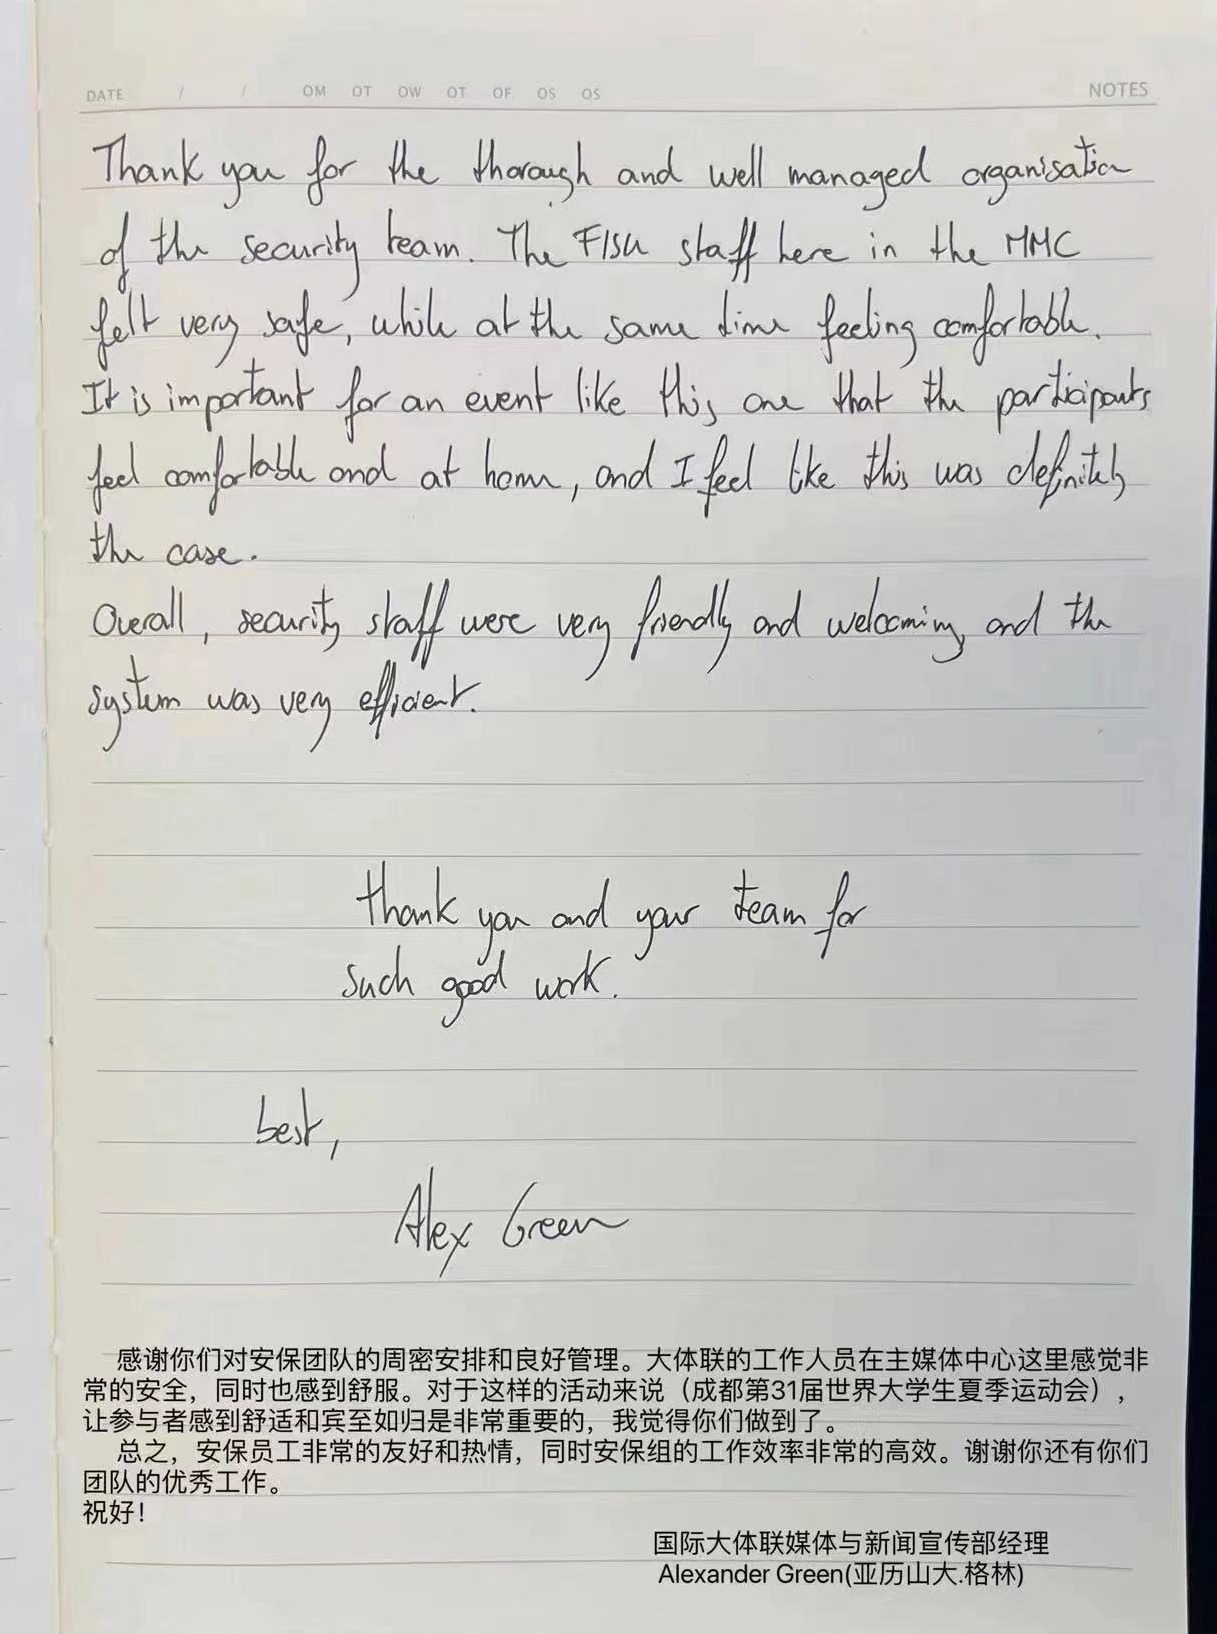 DATE / / OM OT OW OT OF OS OS NOTES
Thank you for the thorough and well managed organisation
of the security team. The FISU staff here in the MMC
felt very safe, while at the same time feeling comfortable.
It is important for an event like this one that the participants
feel comfortable and at home, and I feel like this was definitely
the case.
Overall, security staff were very friendly and welcoming, and the
system was very efficient.
Thank you and your team for
such good work.
best,
Alex Green
感谢你们对安保团队的周密安排和良好管理。大体联的工作人员在主媒体中心这里感觉非
常的安全，同时也感到舒服。对于这样的活动来说（成都第31届世界大学生夏季运动会），
让参与者感到舒适和宾至如归是非常重要的，我觉得你们做到了。
总之，安保员工非常的友好和热情，同时安保组的工作效率非常的高效。谢谢你还有你们
团队的优秀工作。
祝好！
国际大体联媒体与新闻宣传部经理
Alexander Green(亚历山大.格林)